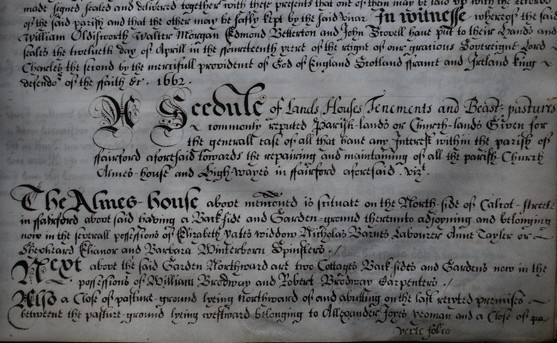 made signed sealed and delivered together with these presents that one of them may be laid up with the Records
of the said parish and that the other may be safly kept by the said Vicar. In witnesse whereof the said
William Oldisworth Walter Morgan Edmond Betterton and John Provell have put to their hands and
seales the twelueth day of Aprill in the fowerteenth yeere of the reigne of our gracious Soveraigne Lord
Charles the second by the mercifull providence of God of England Scotland ffrance and Ireland king
defendor of the ffaith &c. 1662.
A Scedule of Lands Houses Tenements and Beast-pastures
commonly reputed Parish-lands or Church-lands Given for
the generall ease of all that have any Interest within the parish of
ffairford aforesaid towards the repairing and maintaining of all the parish Church
Almes-house and High-wayes in ffairford aforesaid. Vizt.
The Almes-house above mentioned is situate on the North-side of Calcot-streete
in ffairford above said having a Backside and Garden-ground thereunto adjoyning and belonging
now in the severall possessions of Elizabeth Yates widdow Nicholas Barnes Labourer Anne Taylor
Elianor and Barbara Winterborn Spinsters./
Next above the said Garden Northward are two Cottages Back-sides and Gardens now in the
possessions of William Brodway and Robert Brodway Carpenters./
Also a Close of pasture-ground lyeing Northward of and abutting on the last recyted premises
betweene the pasture-ground lyeing westward belonging to Allexander yeoman and a Close of pa
verte folio